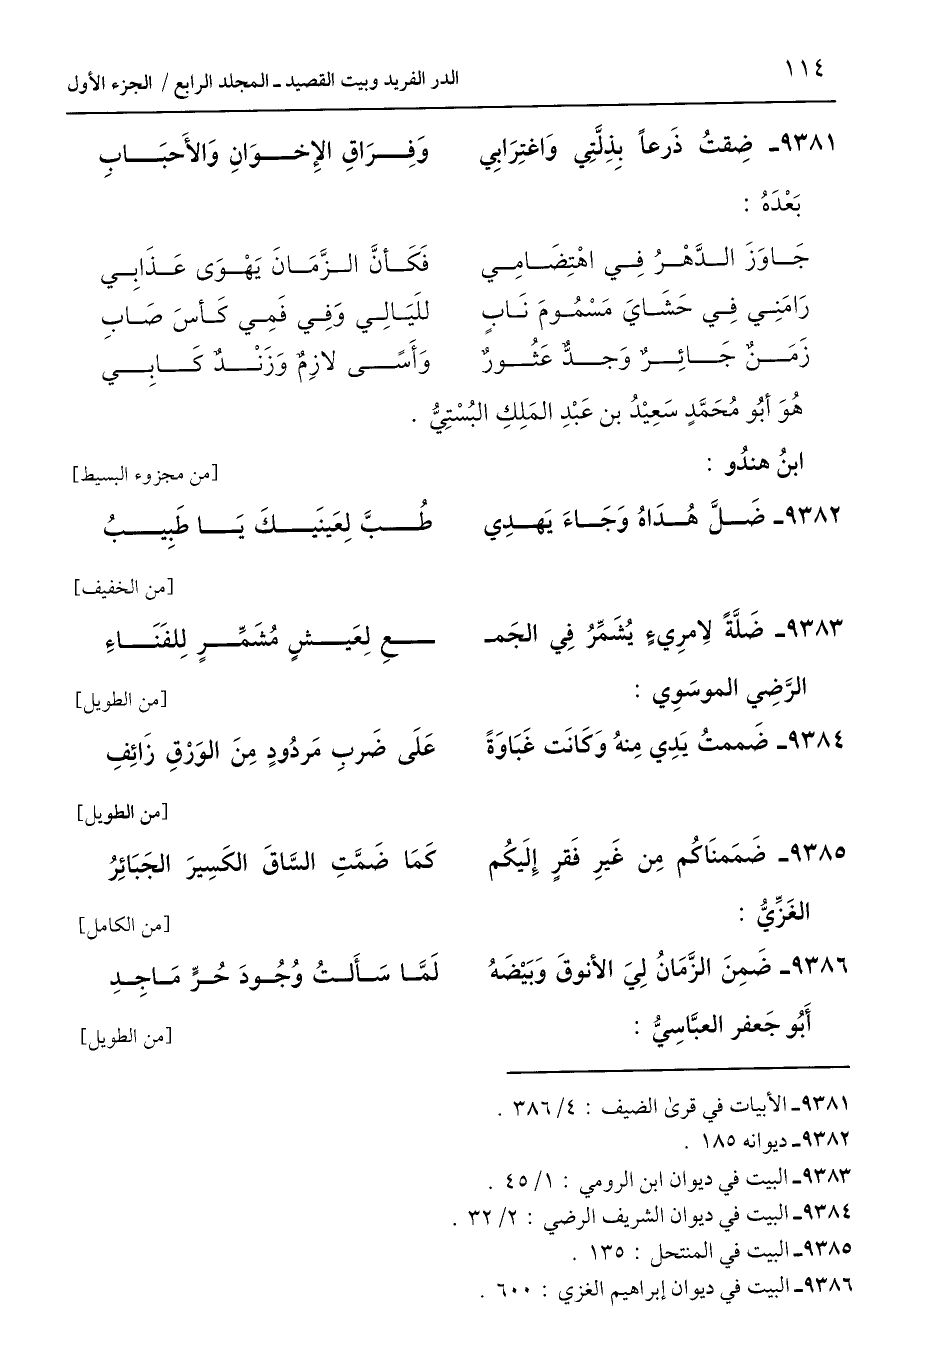 ١١٤
الدر الفريد وبيت القصيد ـ المجلد الرابع / الجزء الأول
٩٣٨١ـ ضِقتُ ذَرعاً بِذِلَّتِي وَاغتِرَابِي وَفِـرَاقِ الإِخـوَانِ وَالأَحبَـابِ
بَعْدَهُ :
جَـاوَزَ الـدَّهْـرُ فِـي اهْتِضَـامِـي فَكَـأنَّ الـزَّمَـانَ يَهْـوَى عَـذَابِـي
رَامَنِـي فِـي حَشَـايَ مَسْمُـومَ نَـابٍ للَيَـالِـي وَفِـي فَمِـي كَـأسَ صَـابِ
زَمَـنٌ جَـائِـرٌ وَجـدٌّ عَثُـورٌ وَأَسًـى لازِمٌ وَزَنْـدٌ كَـابِـي
هُوَ أبُو مُحَمَّدٍ سَعِيْدُ بن عَبْدِ المَلِكِ البُسْتِيُّ .
ابنُ هندُو :
[من مجزوء البسيط]
٩٣٨٢ـ ضَـلَّ هُـدَاهُ وَجَـاءَ يَهـدِي طُـبَّ لِعَينَيـكَ يَـا طَبِيـبُ
[من الخفيف]
٩٣٨٣ـ ضَلَّةً لِامرِيءٍ يُشَمِّرُ فِي الجَمـ ـعِ لِعَيـشٍ مُشَمِّـرٍ لِلفَنَـاءِ
الرَّضِي الموسَوِي :
[من الطويل]
٩٣٨٤ـ ضَممتُ يَدِي مِنهُ وَكَانَت غَبَاوَةً عَلَى ضَربِ مَردُودٍ مِنَ الوَرْقِ زَائِفِ
[من الطويل]
٩٣٨٥ـ ضَمَمنَاكُم مِن غَيرِ فَقرٍ إِلَيكُم كَمَا ضَمَّتِ السَّاقَ الكَسِيرَ الجَبَائِرُ
الغَزِّيُّ :
[من الكامل]
٩٣٨٦ـ ضَمِنَ الزَّمَانُ لِيَ الأنوقَ وَبَيْضَهُ لَمَّـا سَـأَلـتُ وُجُـودَ حُـرٍّ مَـاجِـدِ
أَبُو جَعفر العبَّاسِيُّ :
[من الطويل]
٩٣٨١ـ الأبيات في قرىٰ الضيف : ٤/ ٣٨٦ .
٩٣٨٢ـ ديوانه ١٨٥ .
٩٣٨٣ـ البيت في ديوان ابن الرومي : ١/ ٤٥ .
٩٣٨٤ـ البيت في ديوان الشريف الرضي : ٢/ ٣٢ .
٩٣٨٥ـ البيت في المنتحل : ١٣٥ .
٩٣٨٦ـ البيت في ديوان إبراهيم الغزي : ٦٠٠ .